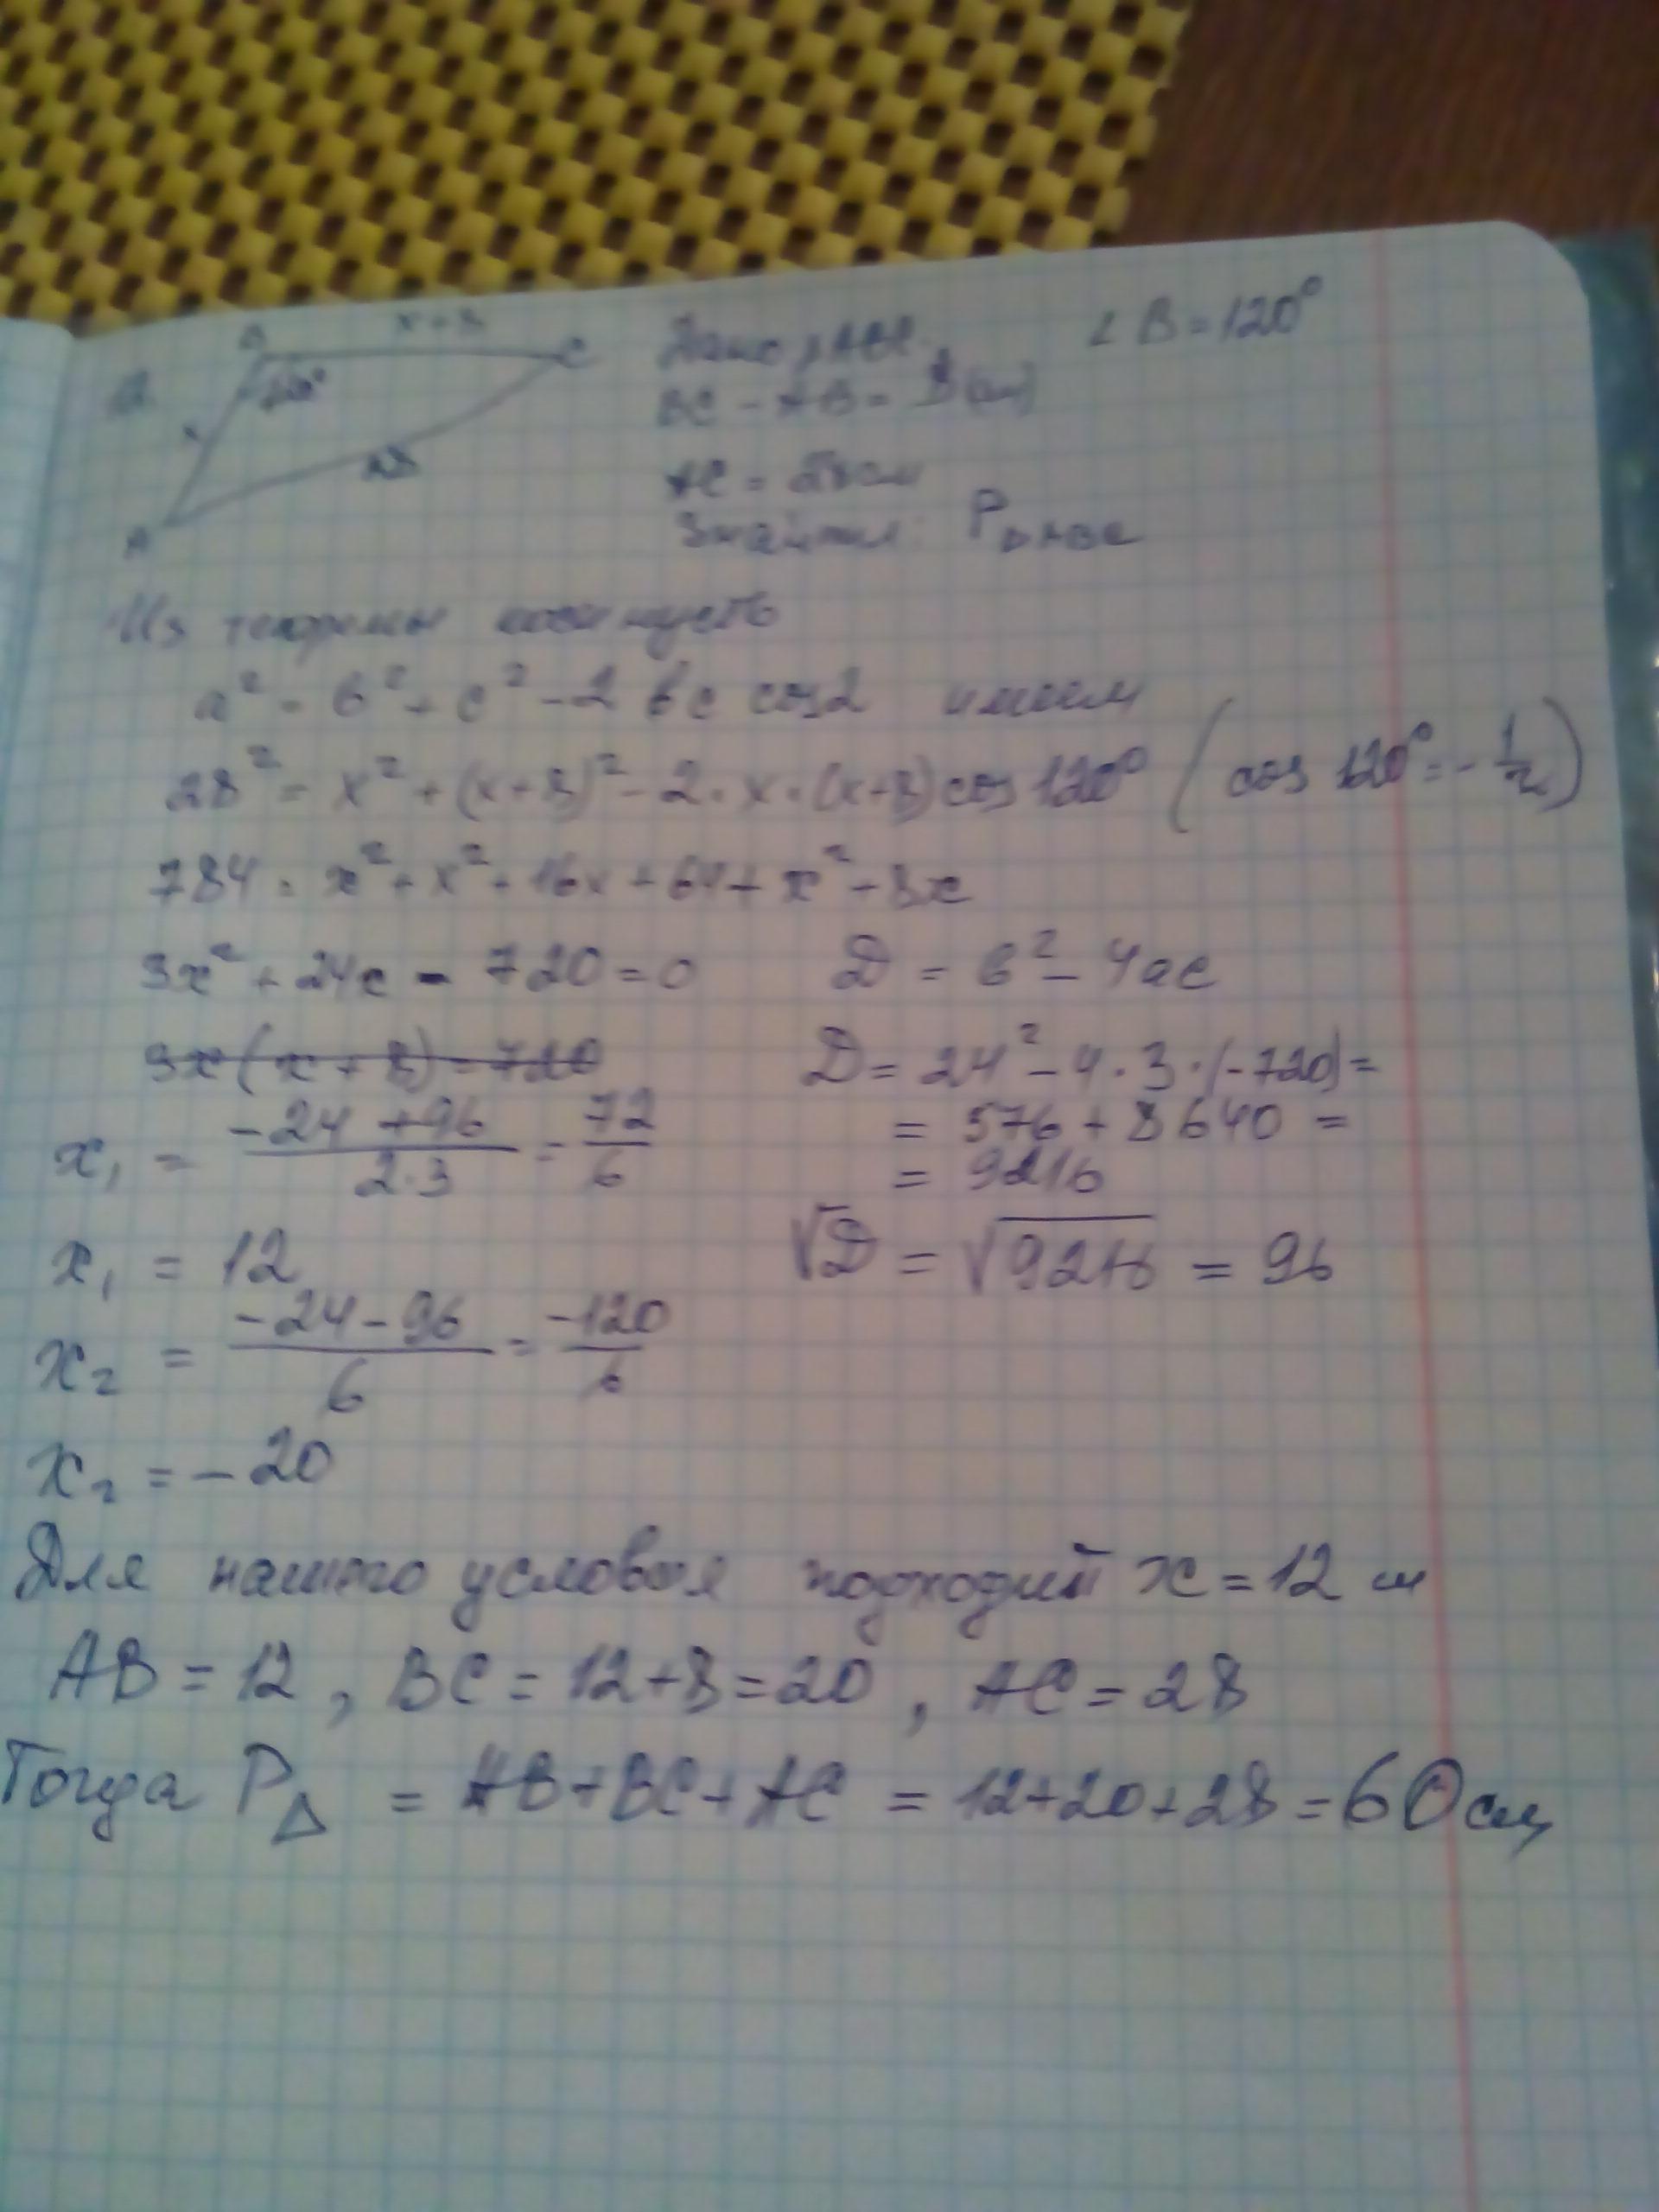 B x+8 C
120°
x
28
A
Дано: ΔABC, ∠B=120°
BC - AB = 8(см)
AC = 28см
Знайти: P ΔABC
Из теоремы
a² = b² + c² - 2 bc cos α имеем
28² = x² + (x+8)² - 2·x·(x+8) cos 120° (cos 120° = -1/2)
784 = x² + x² + 16x + 64 + x² + 8x
3x² + 24x - 720 = 0 D = b² - 4ac
3x(x+8) = 720 D = 24² - 4·3·(-720) =
x₁ = (-24+96)/(2·3) = 72/6 = 576 + 8640 =
= 9216
x₁ = 12 √D = √9216 = 96
x₂ = (-24-96)/6 = -120/6
x₂ = -20
Для нашего условия подходит x = 12 см
AB = 12, BC = 12+8=20, AC = 28
Тогда PΔ = AB+BC+AC = 12+20+28=60см